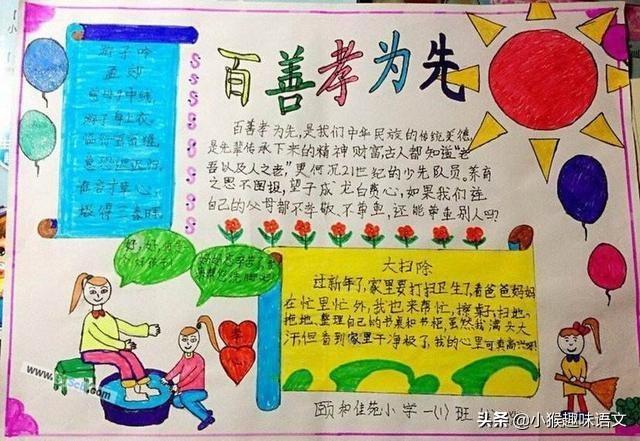 百善孝为先
游子吟
孟郊
慈母手中线,
游子身上衣。
临行密密缝,
意恐迟迟归。
谁言寸草心,
报得三春晖。
百善孝为先,是我们中华民族的传统美德,
是先辈传承下来的精神财富,古人都知道"老
吾以及人之老,"更何况21世纪的少先队员。养育
之恩不图报,望子成龙白费心,如果我们连
自己的父母都不孝敬、不尊重,还能尊重别人吗?
好,好,
好孩子!
妈妈您辛苦了我
来帮您洗脚吧!
孝
心
大扫除
过新年了,家里要打扫卫生了,看爸爸妈妈
在忙里忙外,我也来帮忙,擦桌子、扫地、
拖地、整理自己的书桌和书柜,虽然我满头大
汗但看到家里干净极了,我的心里可真高兴呀!
颐和佳苑小学一(1)班
头条 @小猴趣味语文